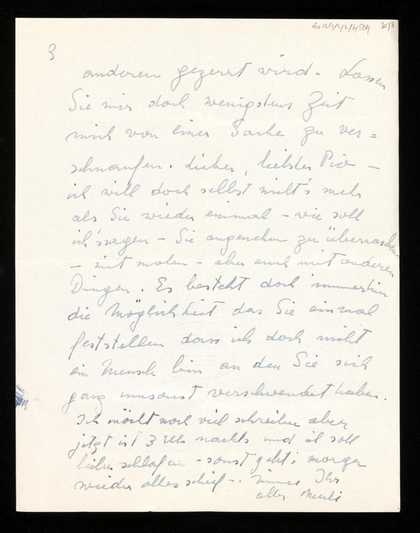 3
anderen gezerrt wird. Lassen
Sie mir doch wenigstens Zeit
mich von einer Sache zu ver=
schnaufen. Lieber, liebster Pio –
ich will doch selbst nichts mehr
als Sie wieder einmal – wie soll
ich sagen – Sie angenehm zu überraschen
– mit malen – aber auch mit anderen
Dingen. Es besteht doch immerhin
die Möglichkeit das Sie einmal
feststellen dass ich doch nicht
ein Mensch bin an den Sie sich
ganz umsonst verschwendet haben.
Ich möcht noch viel schreiben aber
jetzt ist 3 Uhr nachts und ich soll
lieber schlafen – sonst geht's morgen
wieder alles schief –. immer Ihr
alter